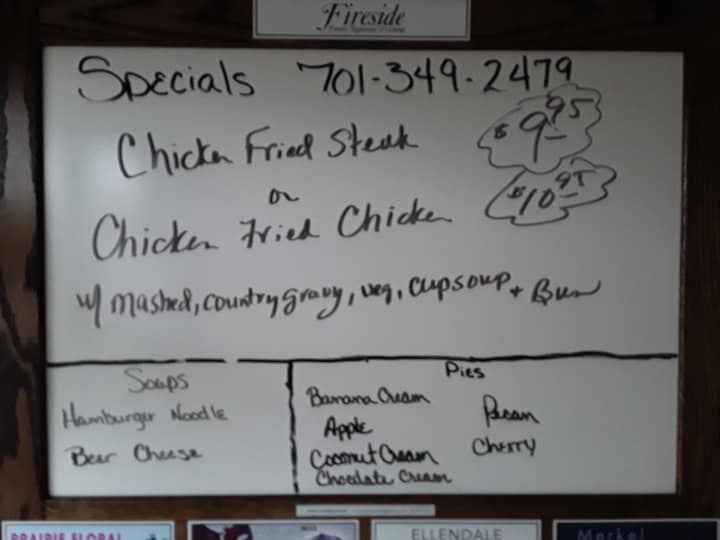 Fireside
Specials 701-349-2479
Chicken Fried Steak $9.95
or
Chicken Fried Chicken $10.95
w/ mashed, country gravy, veg, cup soup + Bun
Soups
Hamburger Noodle
Beer Cheese
Pies
Banana Cream
Apple
Coconut Cream
Chocolate Cream
Pecan
Cherry
PRAIRIE FLORAL
ELLENDALE
Merkel